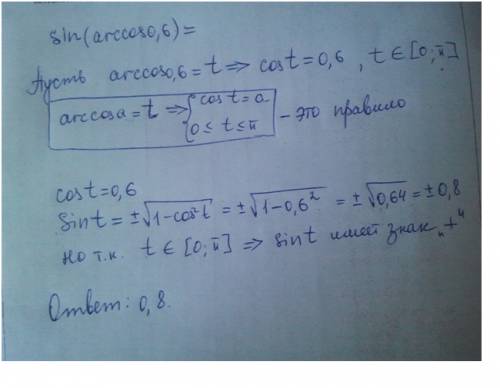 sin(arccos0,6)=
Пусть arccos0,6=t ⇒ cost=0,6, t∈[0;π]
arccosa=t ⇒ {cost=a 0≤t≤π - это правило
cost=0,6
Sint=±√1-cos²t = ±√1-0,6² = ±√0,64 = ±0,8
Но т.к. t∈[0;π] ⇒ sint имеет знак „+"
Ответ: 0,8.